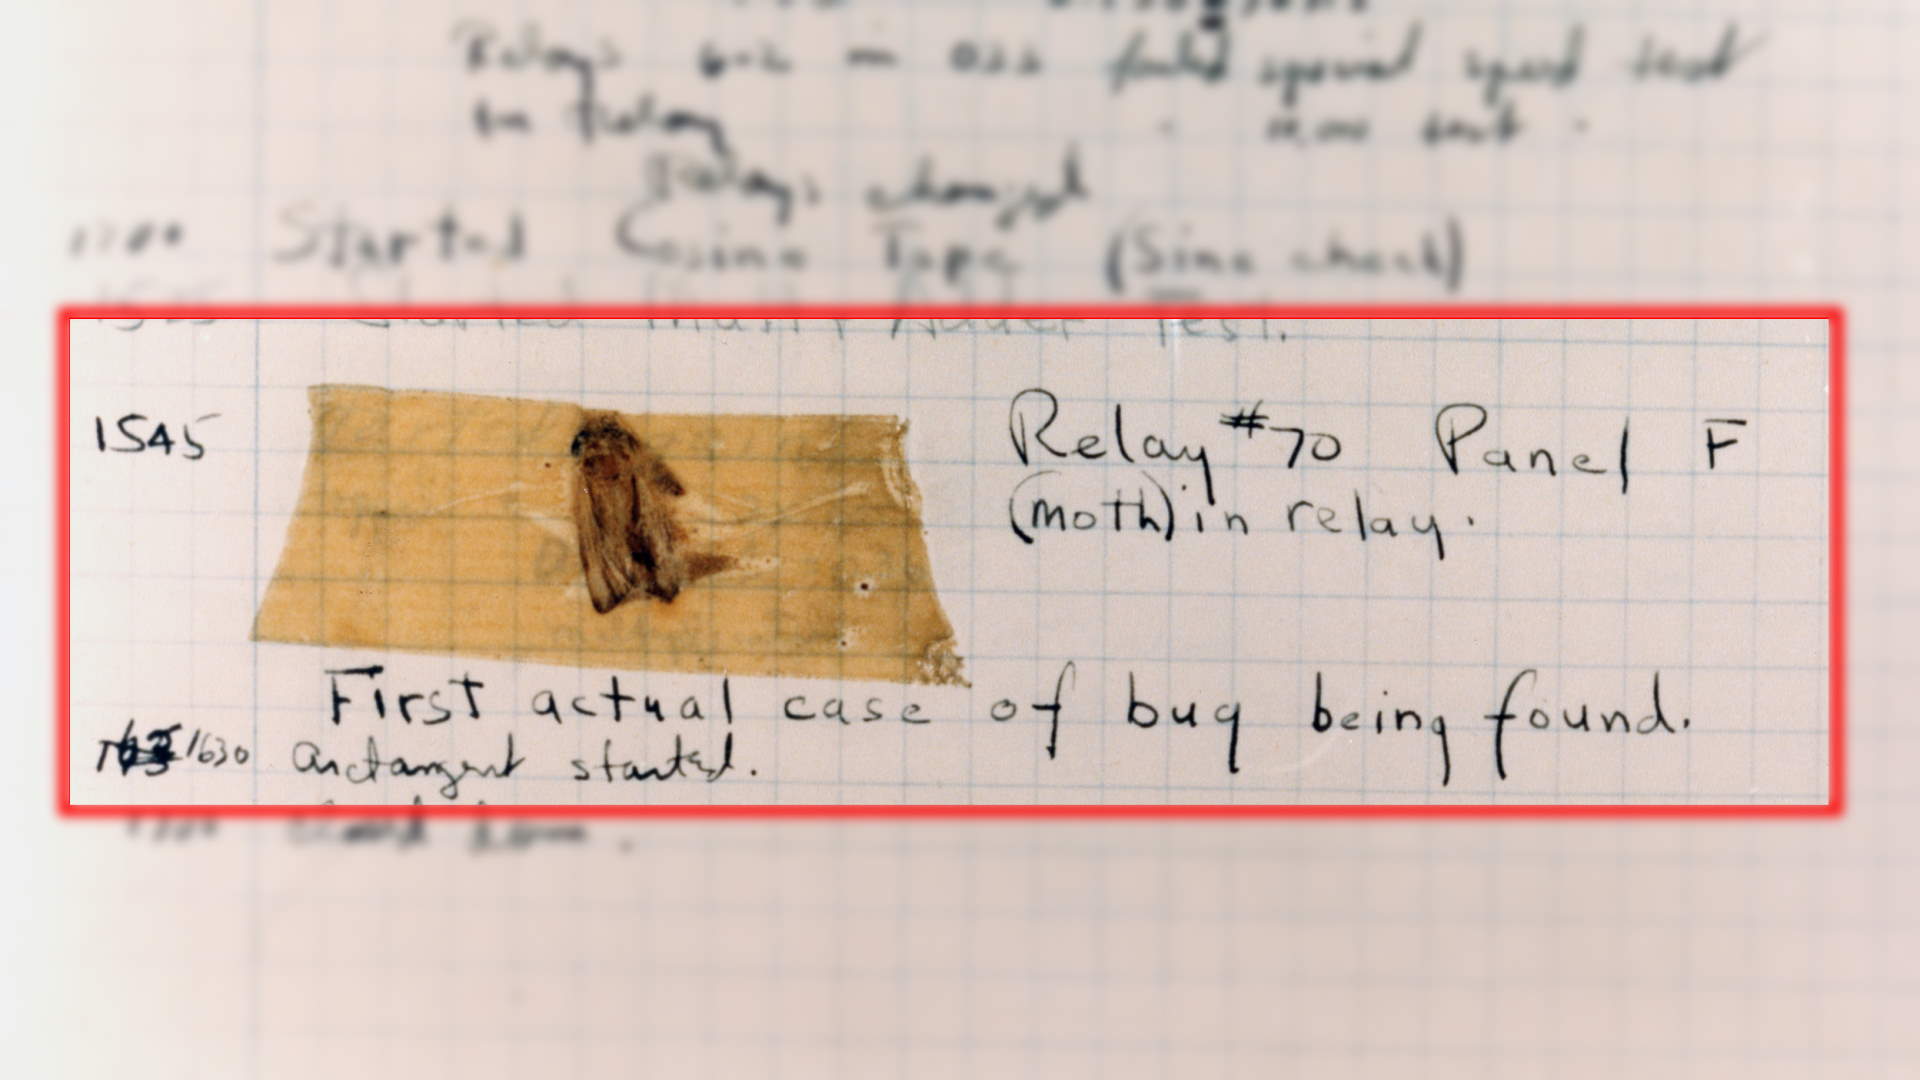 Relays 6-2 in 033 failed special speed test
in relay
Relays changed
Started Cosine Tape (Sine check)
1525 Started Mult+Adder Test.
1545 Relay #70 Panel F
(moth) in relay.
First actual case of bug being found.
1630 arctangent started.
1700 closed down.